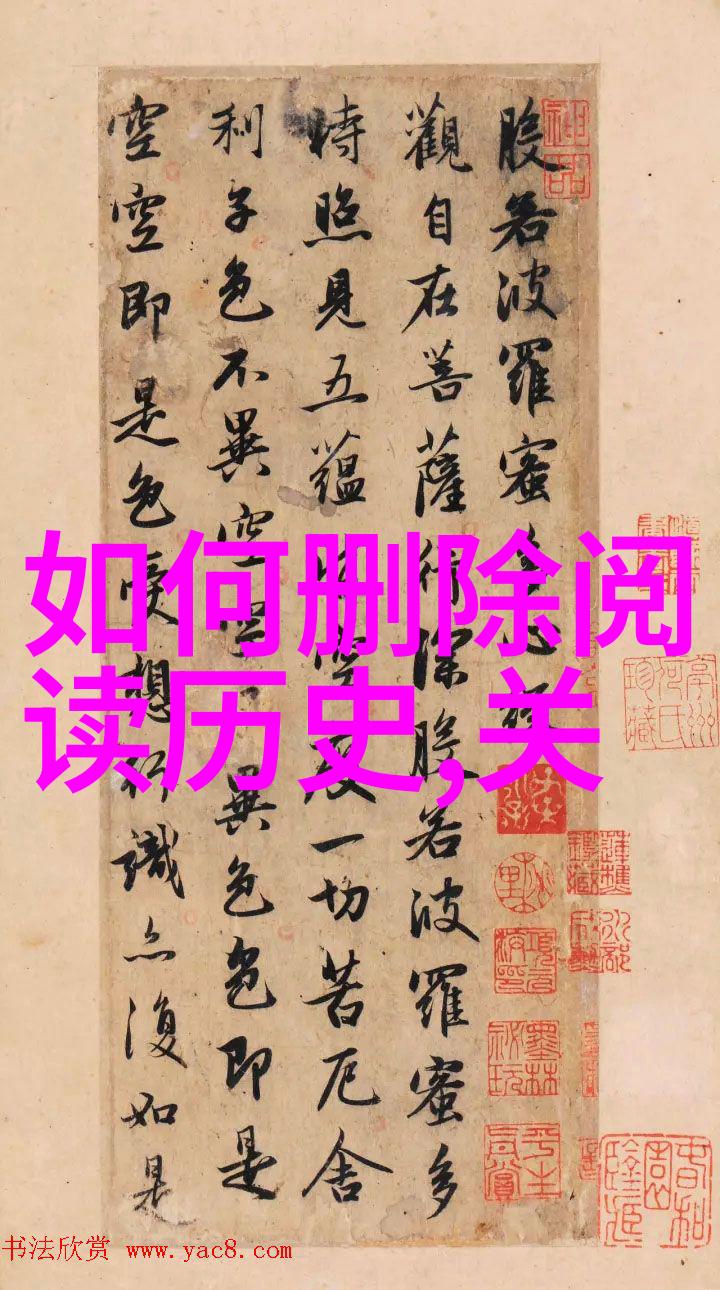 般若波羅蜜多心經
觀自在菩薩行深般若波羅蜜多
時照見五蘊皆空度一切苦厄舍
利子色不異空空不異色色即是
空空即是色受想行識亦復如是
神品
如何删除阅
读历史,关
书法欣赏 www.yac8.com